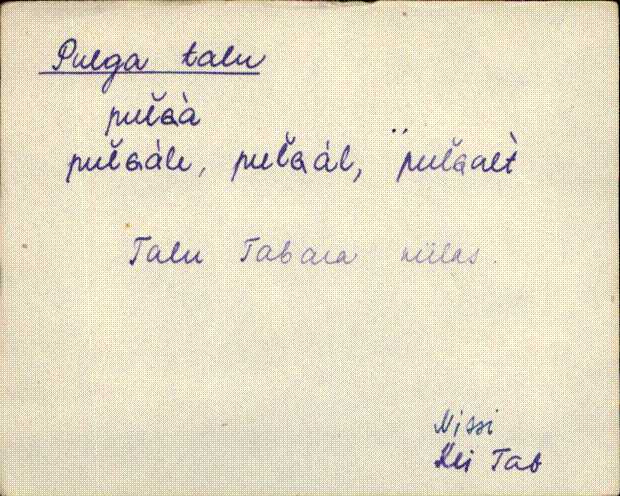 Pulga talu
pulɢà
pulɢàle, pulɢàl, pulɢalt̀
Talu Tabara külas.
Nissi
Tab